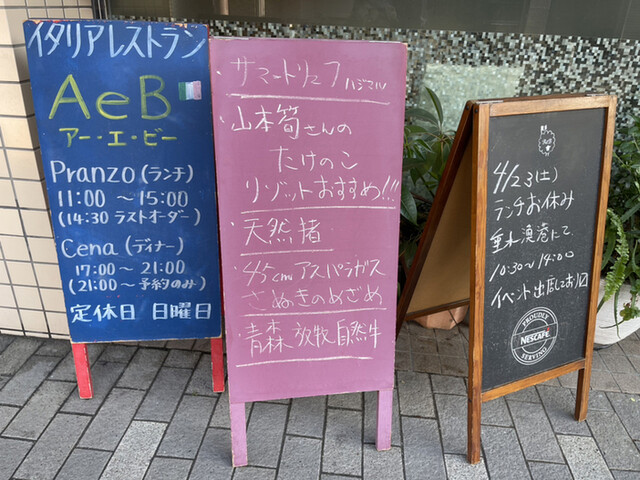 イタリアレストラン
AeB
アー・エ・ビー
Pranzo (ランチ)
11:00 〜 15:00
(14:30 ラストオーダー)
Cena (ディナー)
17:00 〜 21:00
(21:00 〜 予約のみ)
定休日 日曜日
サマートリュフ ハジマル
山本筍さんの
たけのこ
リゾットおすすめ!!!
天然猪
45cm アスパラガス
さぬきのめざめ
青森 放牧自然牛
4/23(土)
ランチお休み
垂水漁港にて
10:30〜14:00
イベント出店しており〼
PROUDLY
NESCAFÉ
SERVING